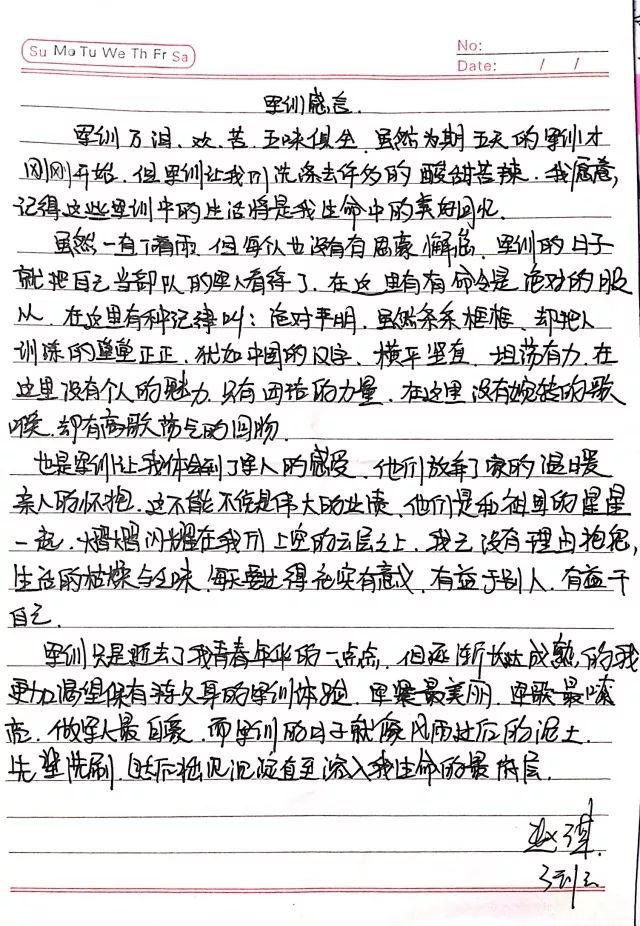 Su Mo Tu We Th Fr Sa
No:
Date: / /
军训感言.
军训万泪、欢、苦、五味俱全、虽然为期五天的军训才
刚刚开始、但军训让我们洗涤去许多的酸甜苦辣、我愿意,
记得这些军训中的生活将是我生命中的美好回忆.
虽然一直下着雨、但每个人也没有有思豪懈怠、军训的日子
就把自己当部队的军人看待了、在这里有有命令是绝对的服
从、在这里有种纪律叫:绝对严明、虽然条条框框、却把人
训练的堂堂正正、犹如中国的汉字、横平竖直、坦荡有力、在
这里没有个人的魅力、只有团结的力量、在这里没有婉转的歌
喉、却有高歌荡气的回肠.
也是军训让我体会到了军人的感受、他们放弃了家的温暖
亲人的怀抱、这不能不能是伟大的业绩、他们是和祖国的星星
一起、熠熠闪耀在我们上空的云层之上、我之没有理由抱怨,
生活的枯燥与乏味、每天要过得充实有意义、有益于别人、有益于
自己.
军训只是逝去了我青春年华的一点点、但逐渐长大成熟的我
更加渴望保有持久享的军训体验、军装最美丽、军歌最嘹
亮、做军人最自爱、而军训的日子就像风雨过后的泥土、
先是洗刷、然后是沉淀直至深入我生命的最底层.